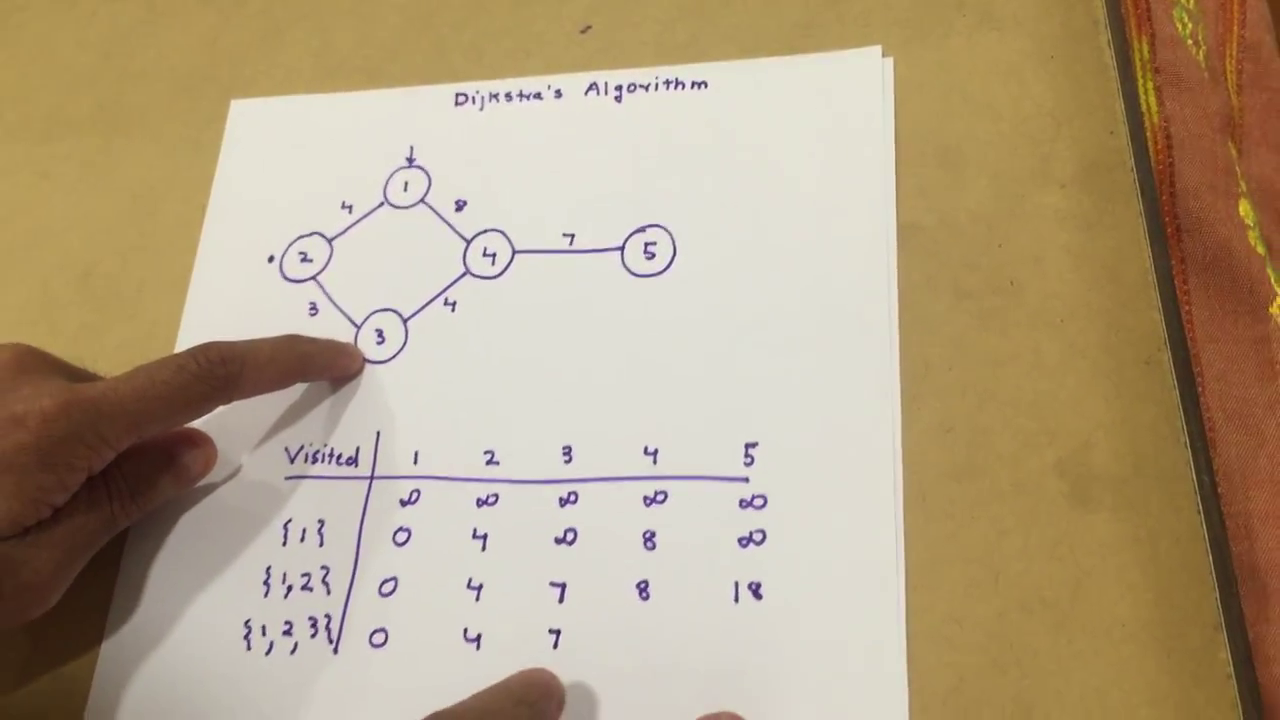 Dijkstra's Algorithm
↓
1
4 8
2 4 7 5
3 4
3
Visited 1 2 3 4 5
∞ ∞ ∞ ∞ ∞
{1} 0 4 ∞ 8 ∞
{1,2} 0 4 7 8 18
{1,2,3} 0 4 7